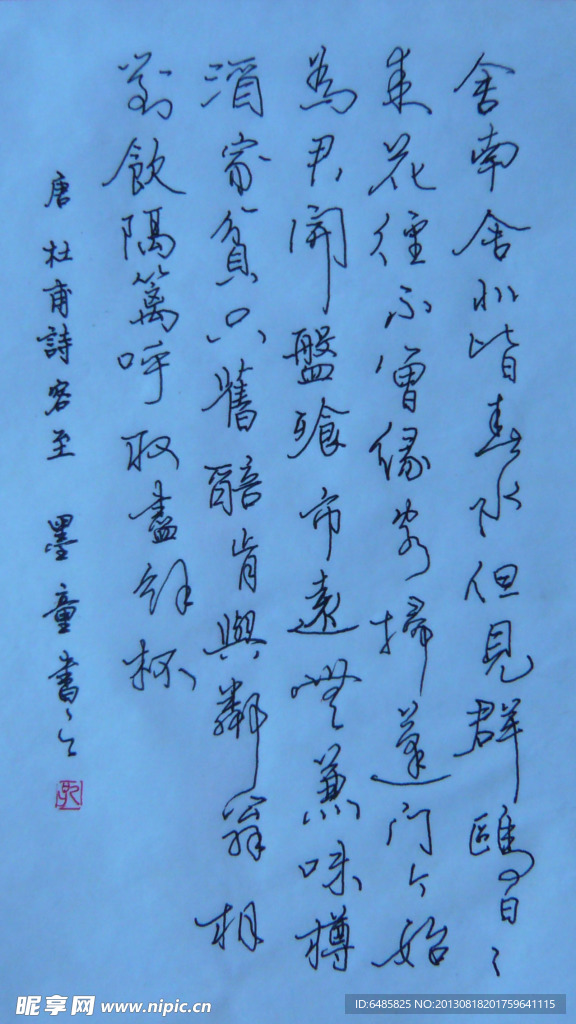 舍南舍北皆春水但見群鷗日日
來花徑不曾緣客掃蓬門今始
為君開盤飱市遠無兼味樽
酒家貧只舊醅肯與鄰翁相
對飲隔籬呼取盡餘杯
唐杜甫詩客至 墨童書
昵享网 www.nipic.cn
ID:6485825 NO:20130818201759641115